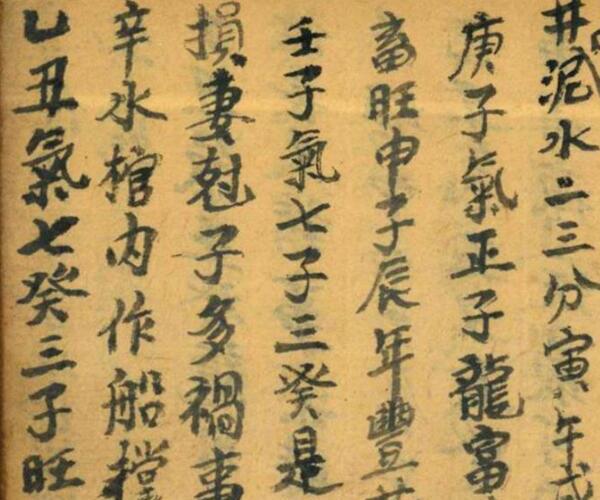 井泥水二三分寅午戌
庚子氣正子龍富
畜旺申子辰年豐
壬子氣七子三癸是
損妻尅子多禍事
辛水棺内作船撑
乙丑氣七癸三子旺